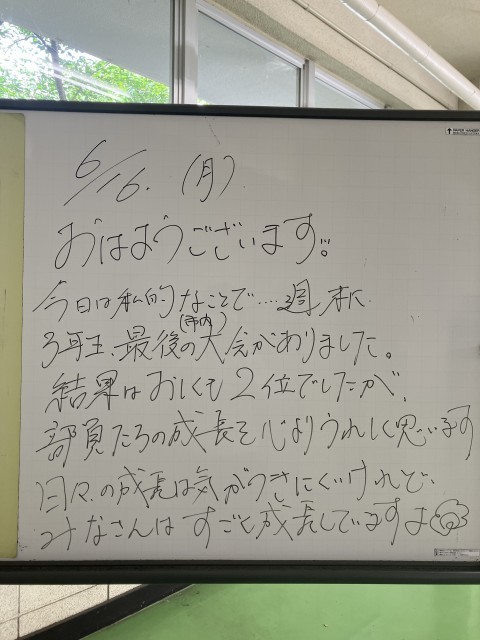 6/16.(月)
おはようございます。
今日は私的なことで…週末に
3年生、最後の(市内)大会がありました。
結果はおしくも2位でしたが、
部員たちの成長を心よりうれしく思います
日々の成長は気がつきにくいけれど、
みなさんはすごく成長していますよ